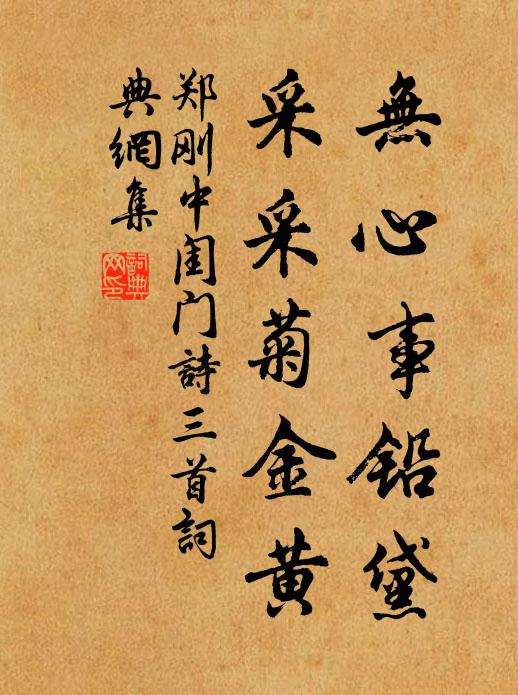 無心事鉛黛
采采菊金黄
郑刚中闺门詩三首詞
典網集
詞典網印